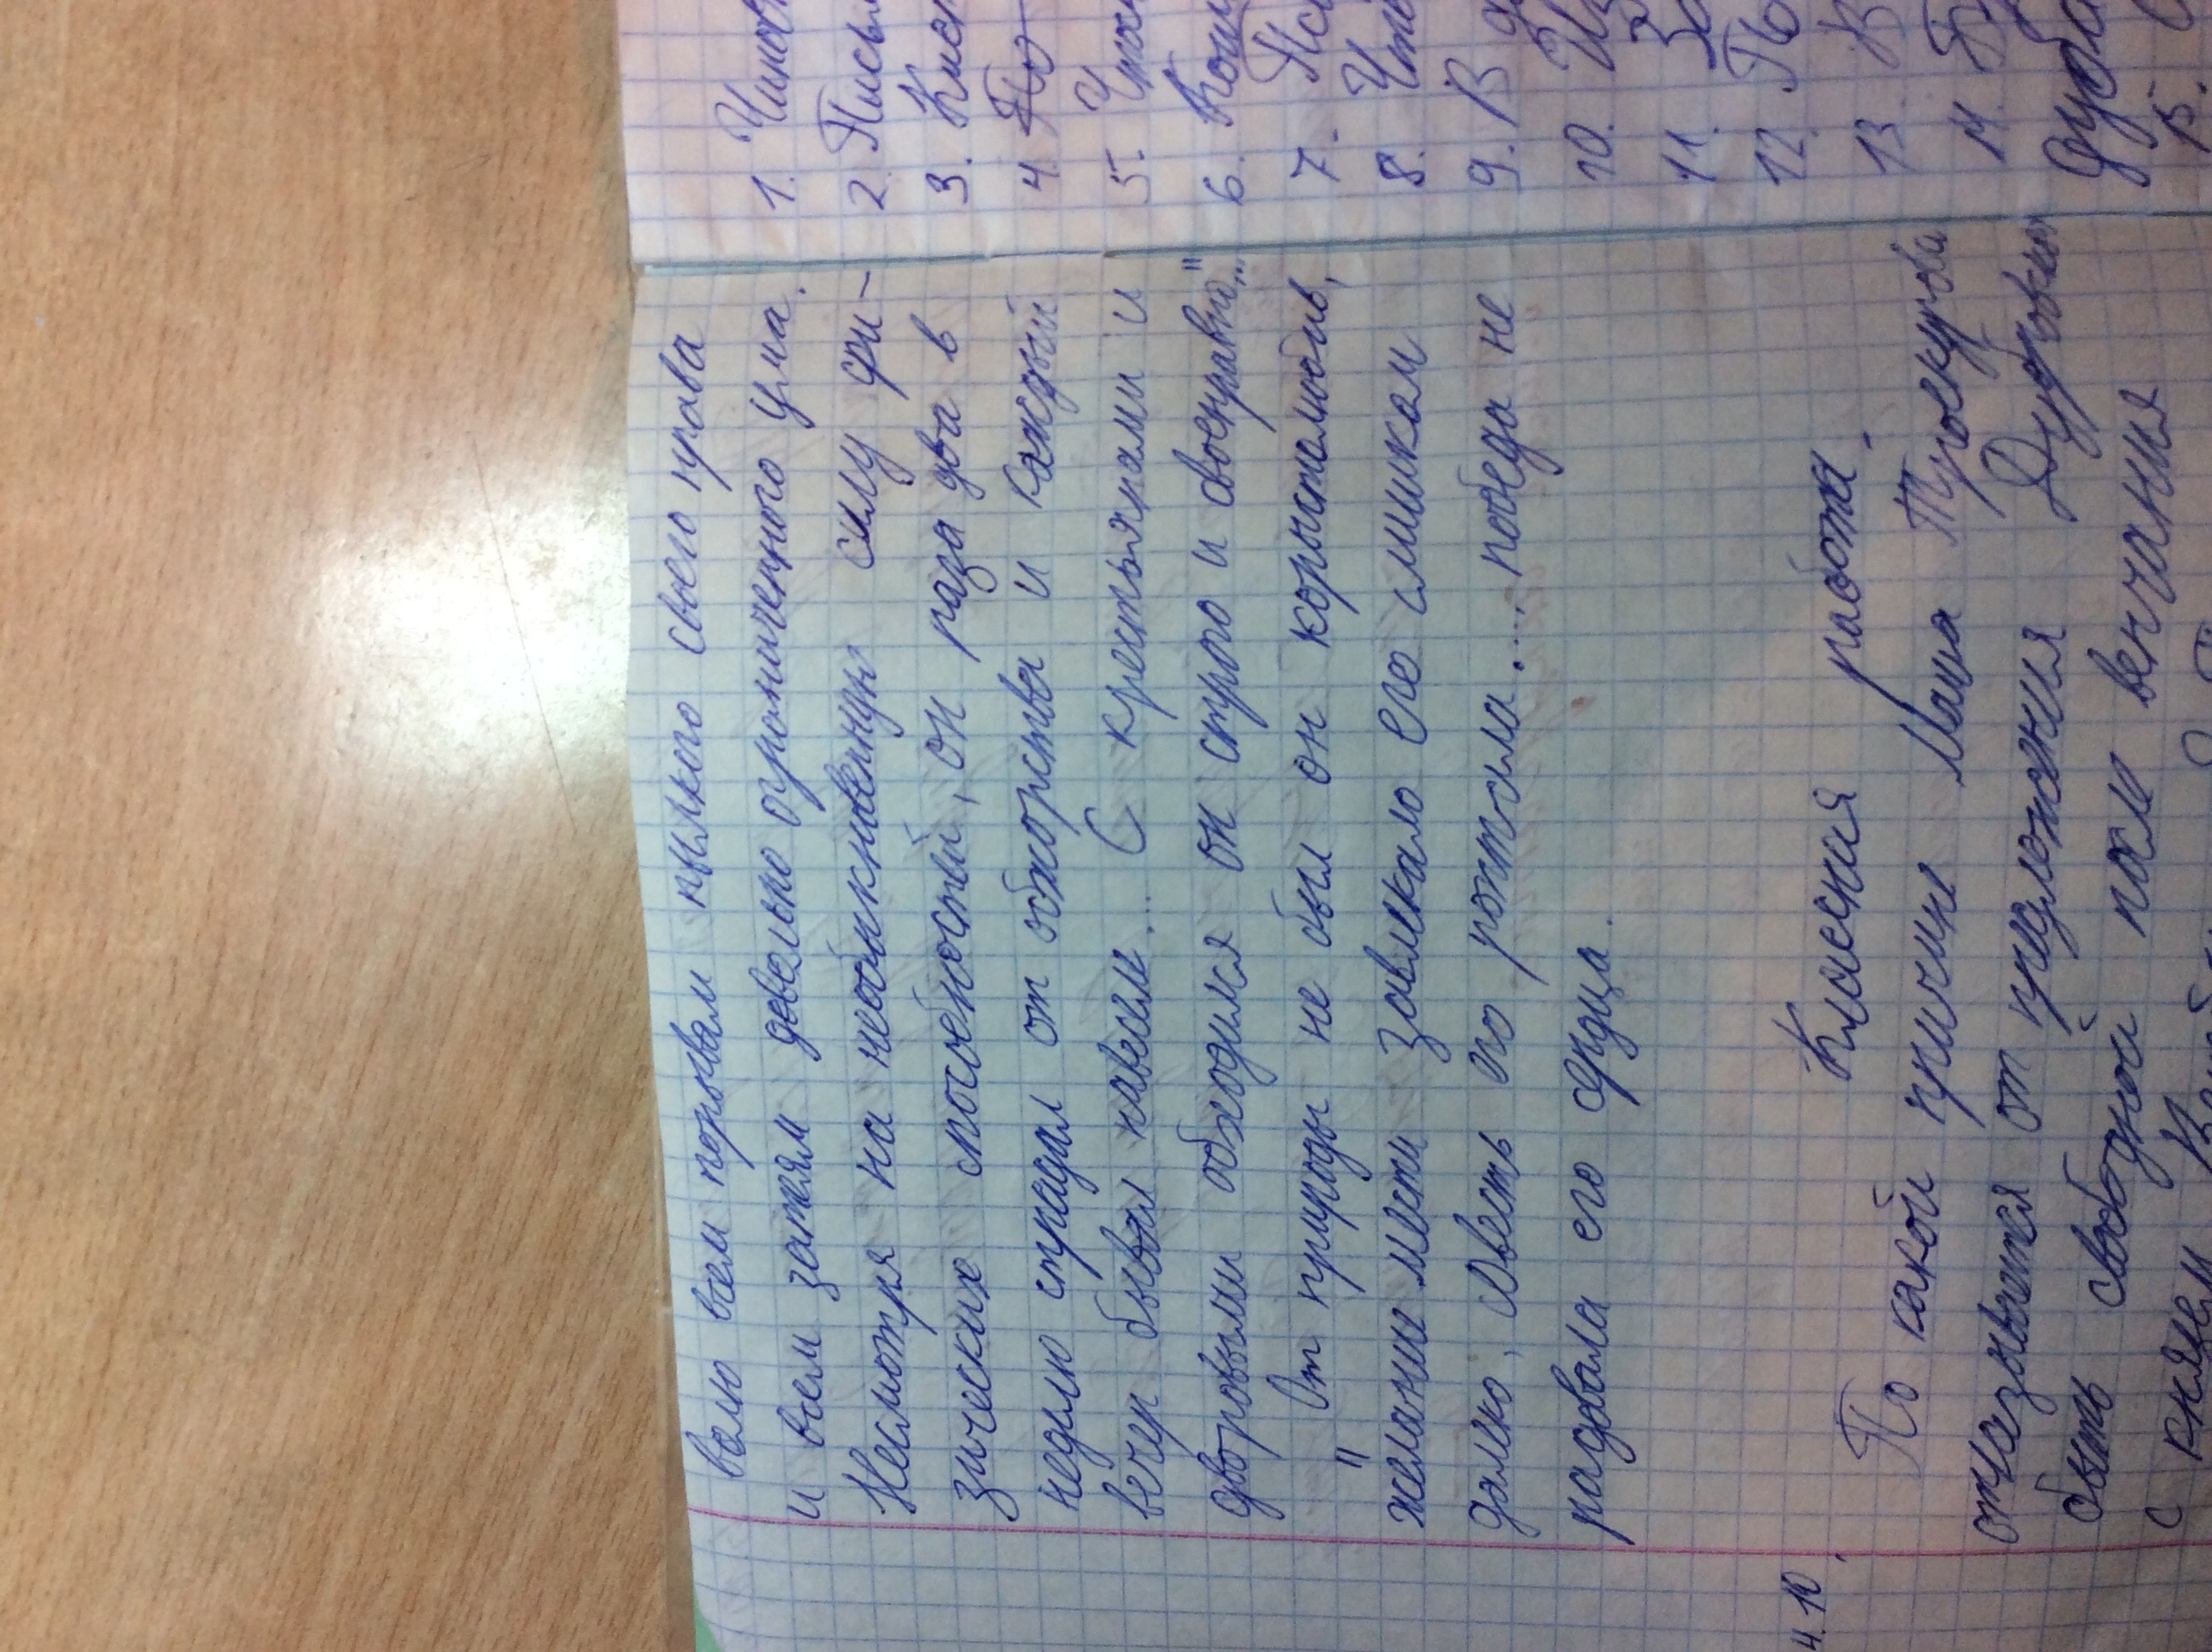 волю всем порывам пылкого своего нрава
и всем затеям довольно ограниченного ума.
Несмотря на необыкновенную силу фи-
зических способностей, он раза два в
неделю страдал от обжорства и каждый
вечер бывал навеселе... С крестьянами и
дворовыми обходился он строго и своенравно..."
"От природы не был он корыстолюбив,
желание мести завлекло его слишком
далеко, совесть его роптала.... победа не
радовала его сердца.
4.10.
Классная работа.
По какой причине Маша Троекурова
отказывается от предложения Дубровского
быть свободной после венчания
с князем
1. Чинов
2. Письм
3. Кист
4. По
5. Что
6. Кош
7. Пос
8. Что
9. В
10. Из
11. За
12. По
13. В
14. В
Дубр
15.